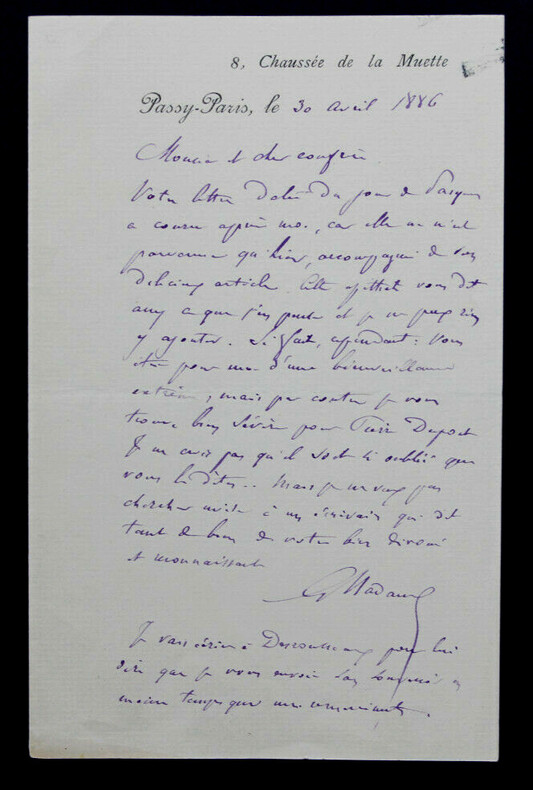 8, Chaussée de la Muette
Passy-Paris, le 30 avril 1886
Monsieur et cher confrère
Votre lettre datée du jour de Pâques
a couru après moi, car elle ne m'est
parvenue qu'hier, accompagnée de vos
délicieux articles. Cette épithète vous dit
assez ce que j'en pense et je ne puis rien
y ajouter. Si fait, cependant: vous
êtes pour moi d'une bienveillance
extrême, mais par contre je vous
trouve bien sévère pour Pierre Dupont
Je ne crois pas qu'il soit si oublié que
vous le dites.. Mais je ne veux pas
chercher noise à un écrivain qui dit
tant de bien de votre bien dévoué
et reconnaissant
G Nadaud
Je vais écrire à Desrousseaux pour lui
dire que je vous envoie ses
même temps que mes remerciements.